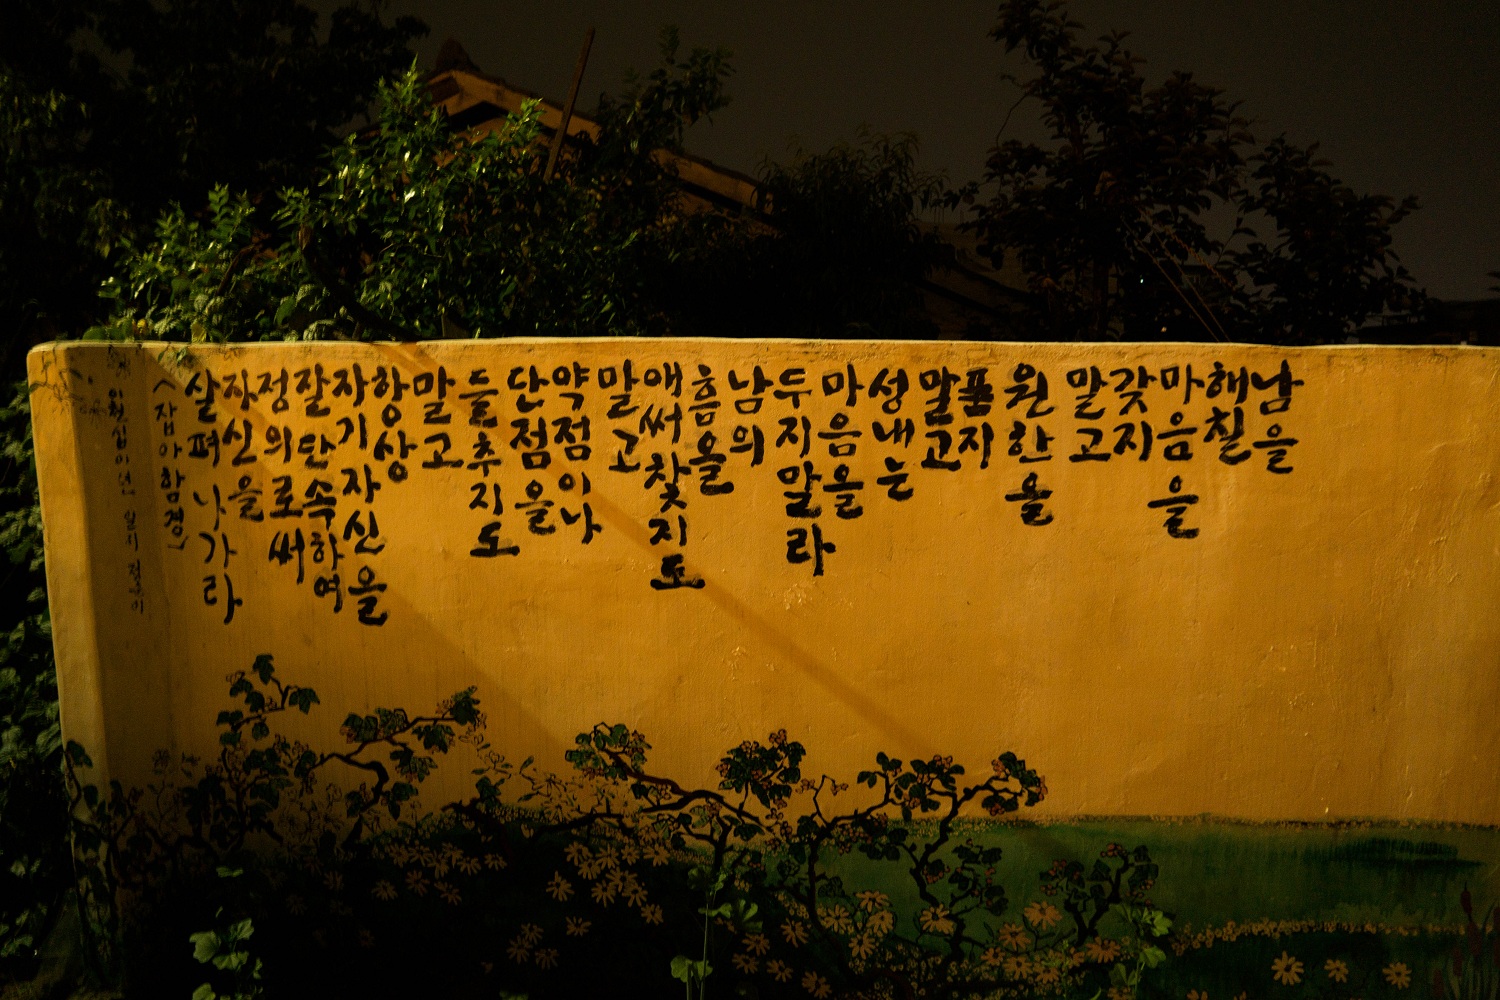 남을
해칠
마음을
갖지
말고
원한을
품지
말고
성내는
마음을
두지말라
남의
흠을
애써찾지도
말고
약점이나
단점을
들추지도
말고
항상
자기자신을
잘단속하여
정의로써
자신을
살펴나가라
<잡아함경>